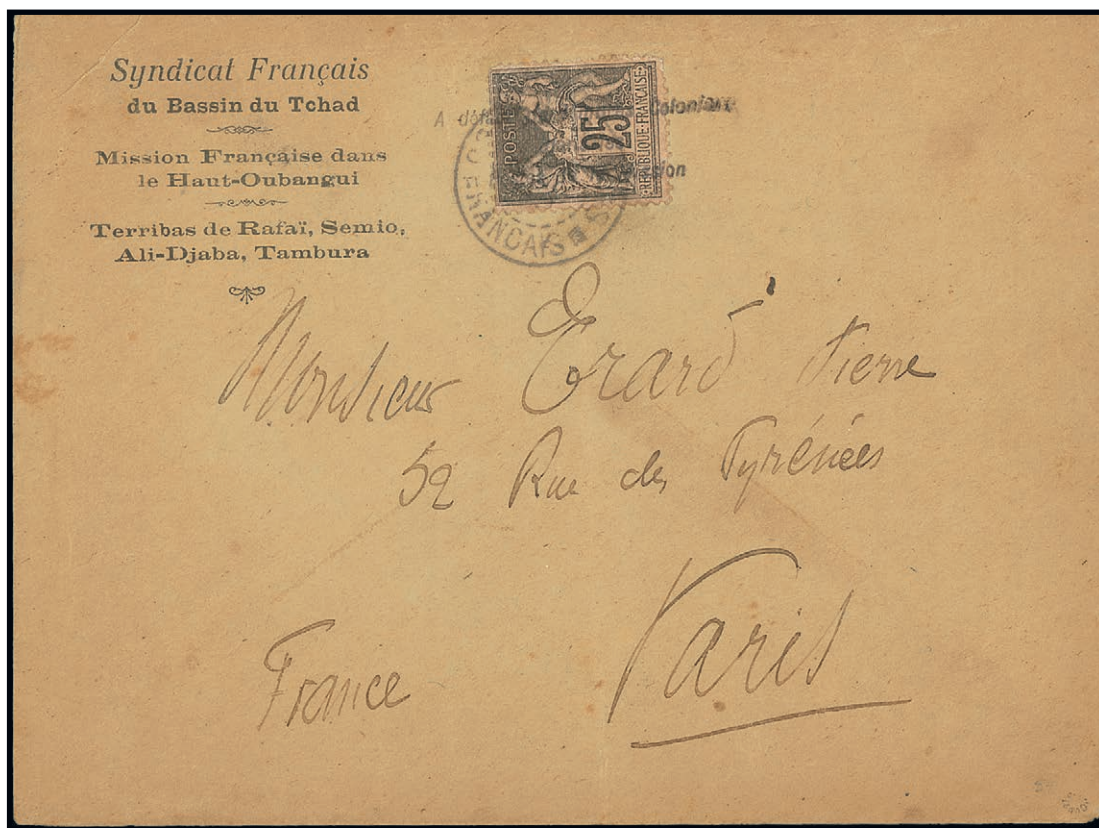 Syndicat Français
du Bassin du Tchad
Mission Française dans
le Haut-Oubangui
Terribas de Rafaï, Semio,
Ali-Djaba, Tambura
POSTES
25
REPUBLIQUE FRANÇAISE
A
FRANCAIS
Monsieur Erard Pierre
52 Rue des Pyrénées
Paris
France